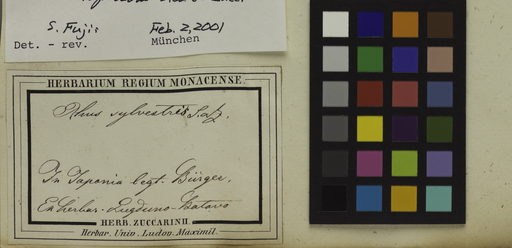 S. Fujii Feb. 2, 2001
Det. - rev. München
HERBARIUM REGIUM MONACENSE.
Rhus sylvestris S. & Z.
In Japonia legt. Bürger.
Ex herbar. Lugduno-Batavo
HERB. ZUCCARINII.
Herbar. Univ. Ludov. Maximil.